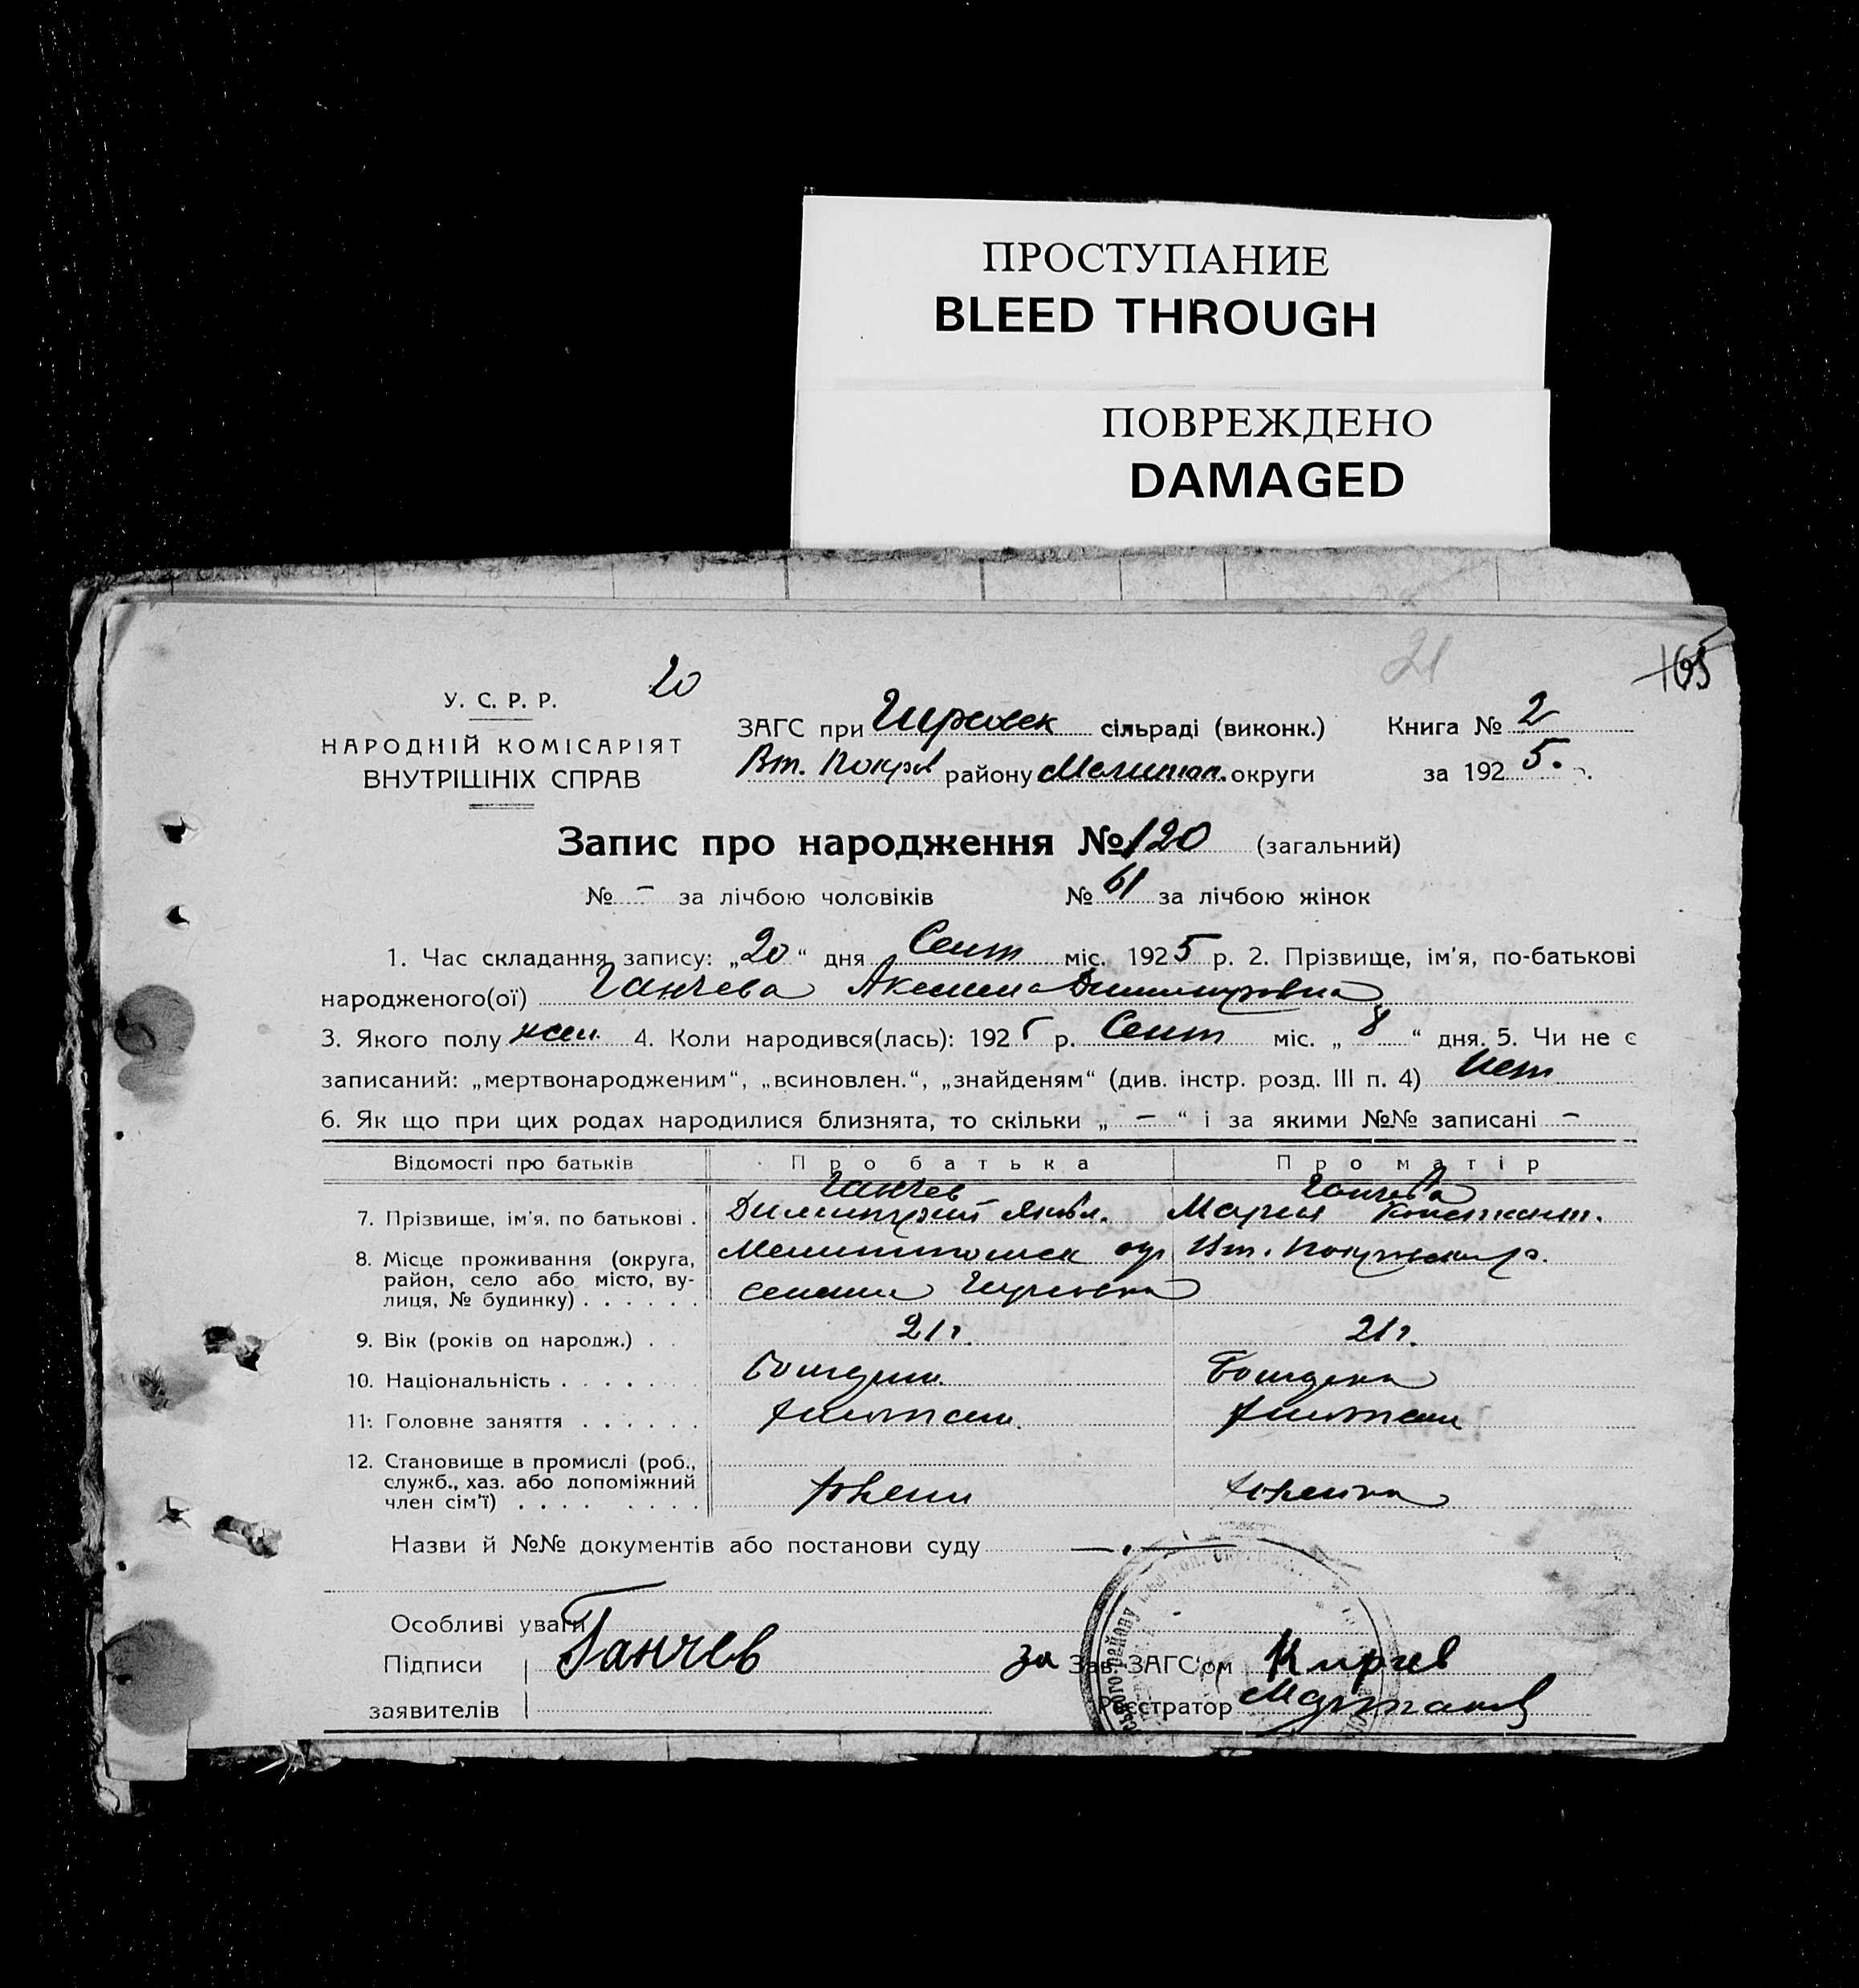 ПРОСТУПАНИЕ
BLEED THROUGH
ПОВРЕЖДЕНО
DAMAGED
21
105
20
У. С. Р. Р.
НАРОДНІЙ КОМІСАРІЯТ
ВНУТРІШНІХ СПРАВ
ЗАГС при сільраді (виконк.) Книга № 2
Вт. Покров району Мелитоп. округи за 1925. р.
Запис про народження № 120 (загальний)
№ - за лічбою чоловіків № 61 за лічбою жінок
1. Час складання запису: „20“ дня Сент міс. 1925 р. 2. Прізвище, ім'я, по-батькові
народженого(ої) Ганчева Димитровна
3. Якого полу жен. 4. Коли народився(лась): 1925 р. Сент міс. „8“ дня. 5. Чи не є
записаний: „мертвонародженим“, „всиновлен.“, „знайденям“ (див. інстр. розд. III п. 4) Нет
6. Як що при цих родах народилися близнята, то скільки „ - “ і за якими №№ записані -
Відомості про батьків Про батька Про матір
Ганчев Ганчева
7. Прізвище, ім'я, по батькові . Димитрий Яковл. Мария Констант.
8. Місце проживання (округа, Мелитопольск окр Вт. Покровский р.
район, село або місто, ву-
лиця, № будинку) . . . . . .
9. Вік (років од народж.) . . 21 г. 21 г.
10. Національність . . . . . . Болгарин. Болгарка
11. Головне заняття . . . . . .
12. Становище в промислі (роб.,
служб., хаз. або допоміжний
член сім'ї) . . . . . . . . .
Назви й №№ документів або постанови суду —.—
Особливі уваги
Підписи Ганчев за Зав. ЗАГС'ом
заявителів Реєстратор